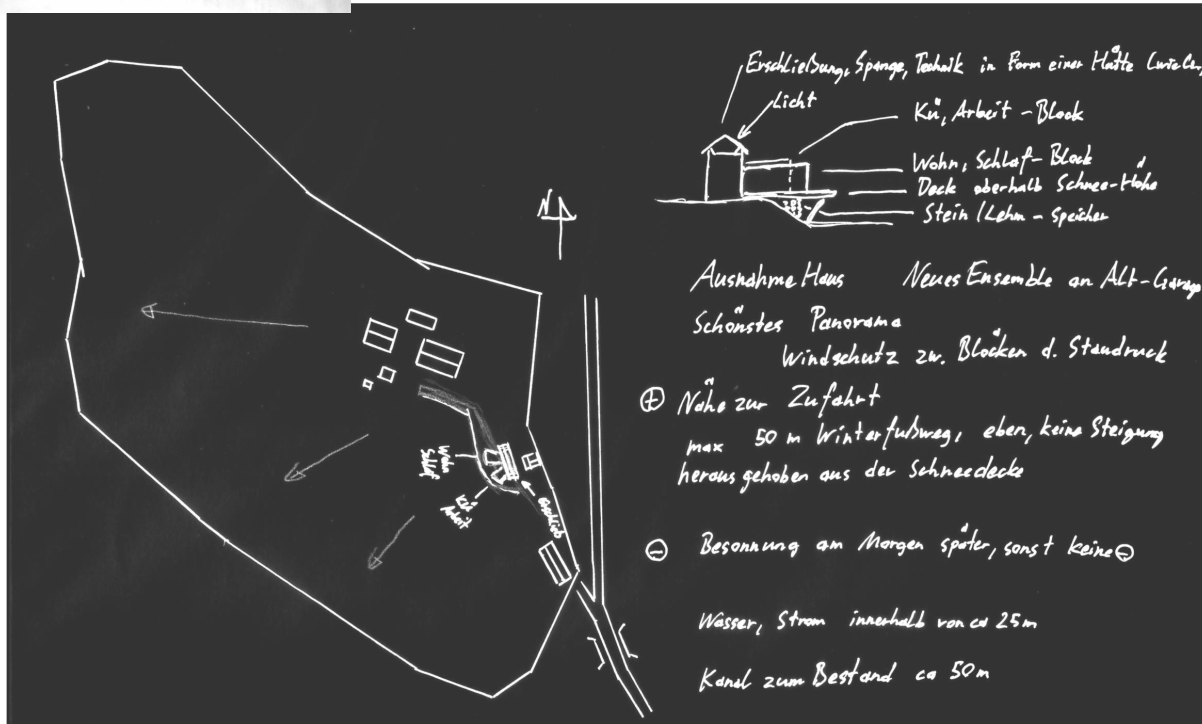 Erschließung, Spange, Technik in Form einer Hütte
Licht
Kü, Arbeit - Block
Wohn, Schlaf - Block
Deck oberhalb Schnee-Höhe
Stein / Lehm - speicher
N
Ausnahme Haus Neues Ensemble an Alt-Garage
Schönstes Panorama
Windschutz zw. Blöcken d. Staudruck
⊕ Nähe zur Zufahrt
max 50 m Winterfußweg, eben, keine Steigung
heraus gehoben aus der Schneedecke
⊖ Besonnung am Morgen später, sonst keine ⊖
Wasser, Strom innerhalb von ca 25 m
Kanal zum Bestand ca 50 m
Wohn
Schlaf
Kü
Arbeit
Erschließ